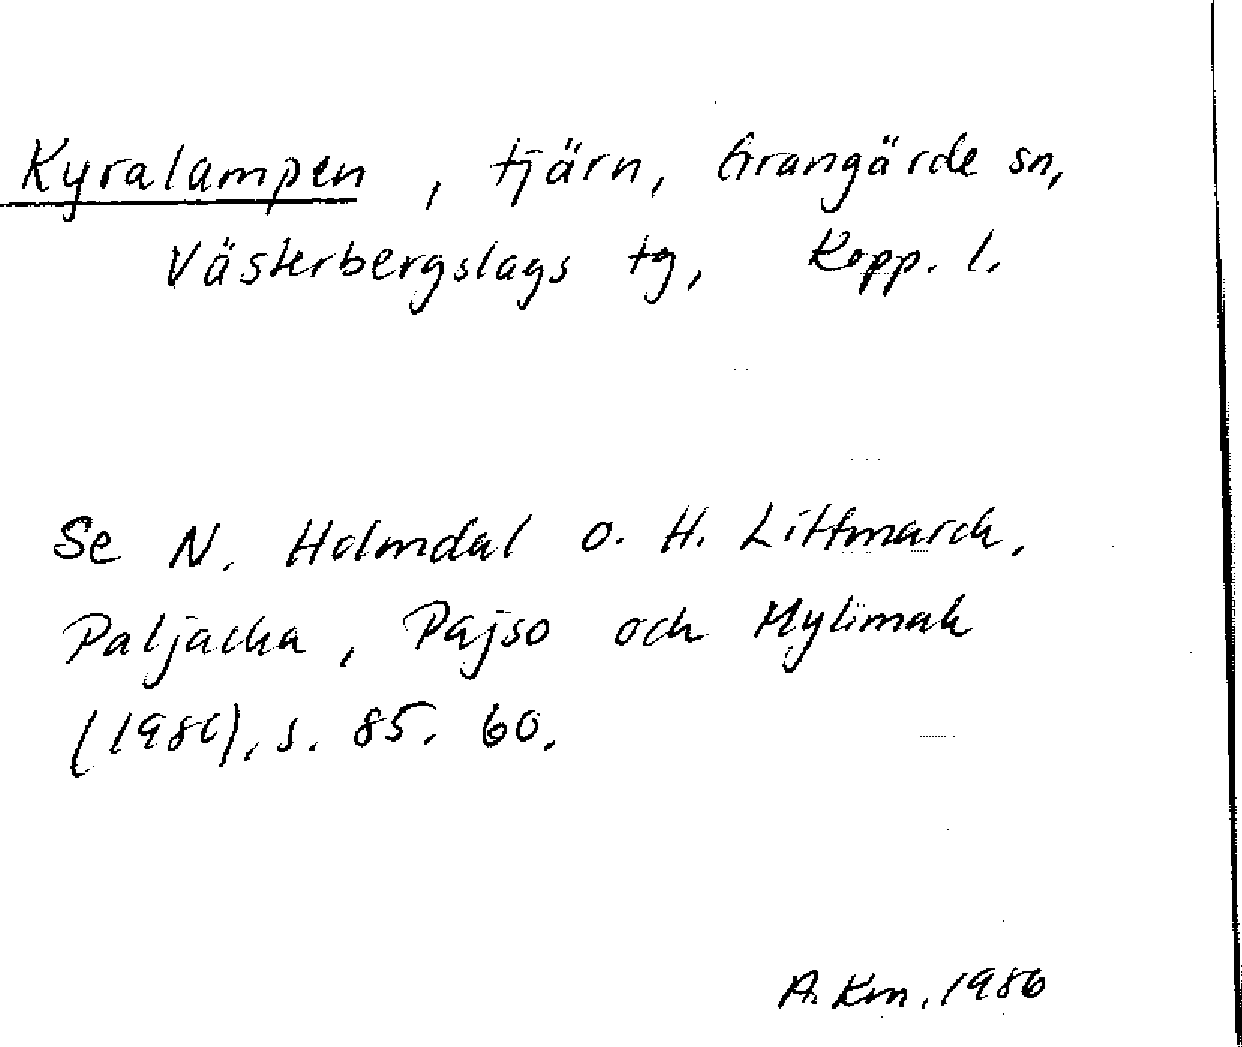 Kyralampen, tjärn, Grangärde sn,
Västerbergslags tg, Kopp. l.
Se N. Holmdal o. H. Littmarck,
Paljacka, Pajso och Mylimak
s. 85. 60.
A. Km. 1986